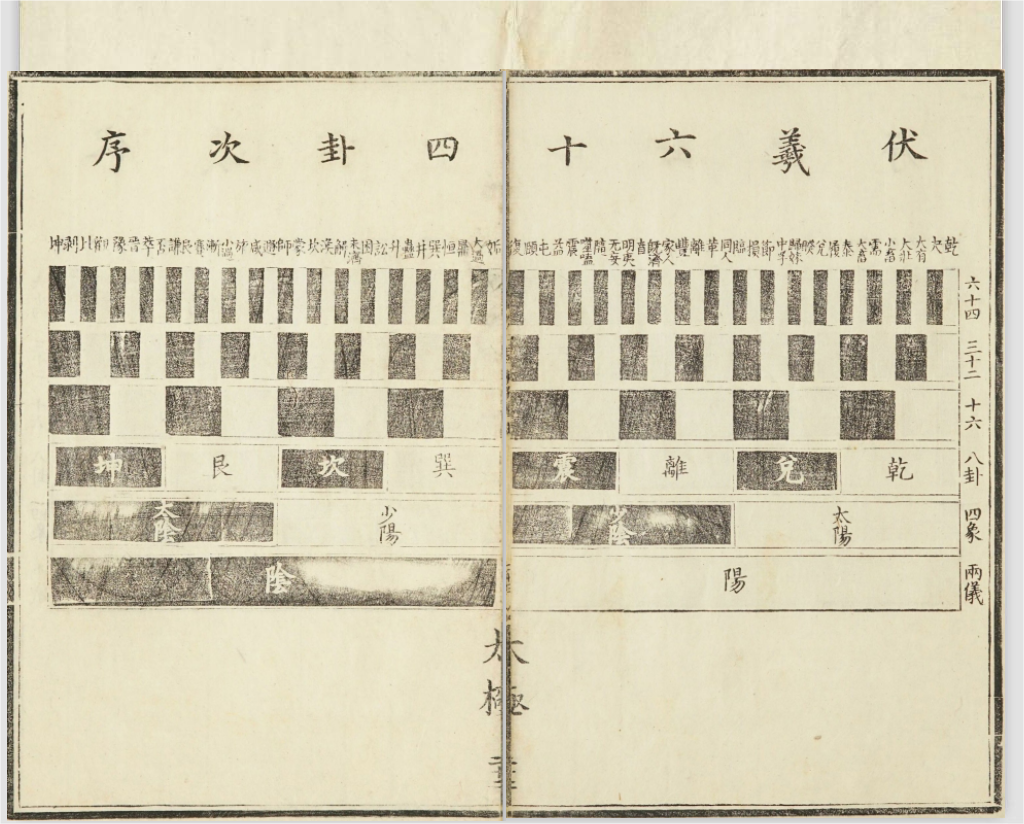 伏羲六十四卦次序
乾 夬 大有 大壯 小畜 需 大畜 泰 履 兌 睽 歸妹 中孚 節 損 臨 同人 革 離 豐 家人 既濟 賁 明夷 无妄 隨 噬嗑 震 益 屯 頤 復 姤 大過 鼎 恒 巽 井 蠱 升 訟 困 未濟 解 渙 坎 蒙 師 遯 咸 旅 小過 漸 蹇 艮 謙 否 萃 晉 豫 觀 比 剝 坤
六十四
三十二
十六
八卦 乾 兌 離 震 巽 坎 艮 坤
四象 太陽 少陰 少陽 太陰
兩儀 陽 陰
太極